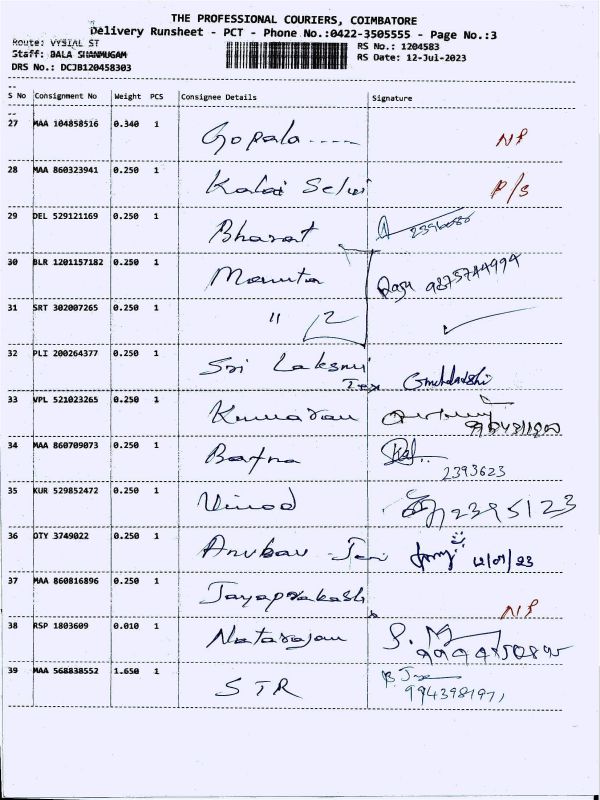 THE PROFESSIONAL COURIERS, COIMBATORE
Delivery Runsheet - PCT - Phone No.:0422-3505555 - Page No.:3
Route: VYSIAL ST
RS No.: 1204583
Staff: BALA SHANMUGAM
RS Date: 12-Jul-2023
DRS No.: DCJB120458303
S No Consignment No Weight PCS Consignee Details Signature
27 MAA 104858516 0.340 1 Gopala ---- NP
28 MAA 860323941 0.250 1 Kalai Selvi P/S
29 DEL 529121169 0.250 1 Bharat
30 BLR 1201157182 0.250 1 9875744994
31 SRT 302007265 0.250 1 " 2
32 PLI 200264377 0.250 1 Sri Laksmi Tex
33 VPL 521023265 0.250 1 Kumaran
34 MAA 860709073 0.250 1 Bafna 2393623
35 KUR 529852472 0.250 1 Vinod 2395123
36 OTY 3749022 0.250 1 12/07/23
37 MAA 860816896 0.250 1 Jayaprakash NP
38 RSP 1803609 0.010 1 Natarajan
39 MAA 568838552 1.650 1 STR